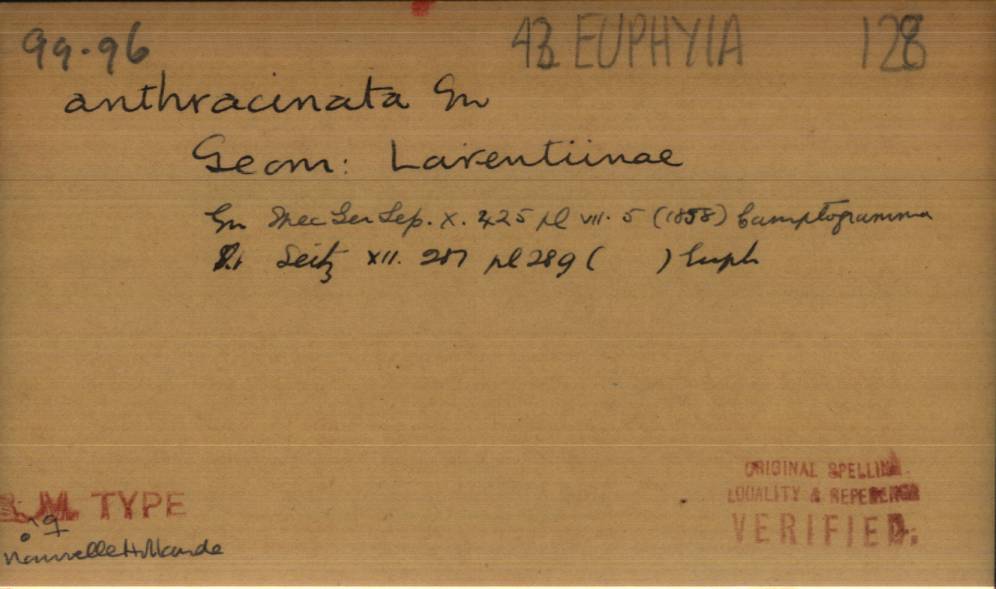 99.96 43 EUPHYIA 128
anthracinata Gn
Geom: Larentiinae
Gn Spec Gen Lep. X. 425 pl VII. 5 (1858) Camptogramma
Seitz XII. 287 pl 28g ( ) Euph
B.M. TYPE
♀
Nouvelle Hollande
ORIGINAL SPELLING.
LOCALITY & REFERENCE
VERIFIED.